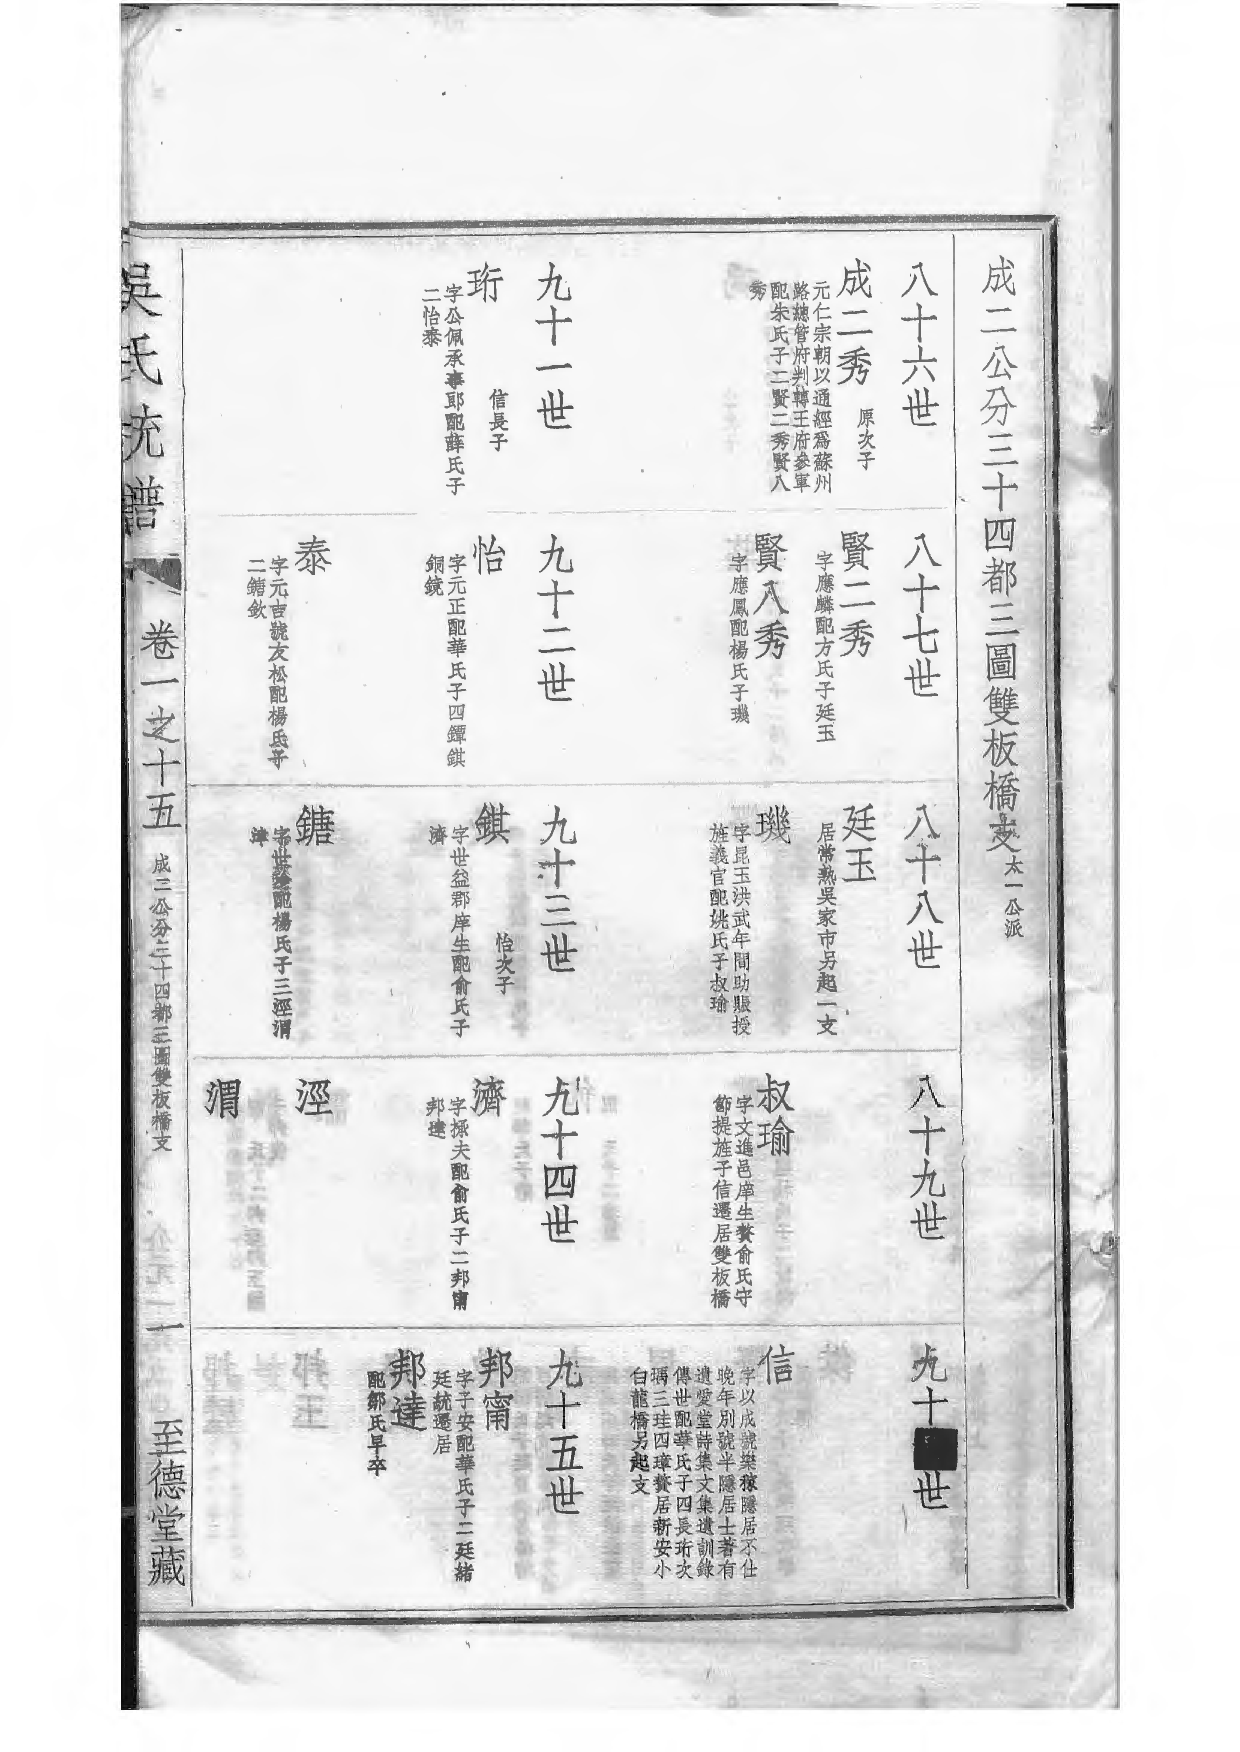 成二公分三十四都三圖雙板橋支 太一公派
八十六世
成二秀 原次子
元仁宗朝以通經爲蘇州
路總管府判轉王府參軍
配朱氏子二賢二秀賢八
秀
九十一世
珩 信長子
字公佩承事郎配薛氏子
二怡泰
八十七世
賢二秀
字應麟配方氏子廷玉
賢八秀
字應鳳配楊氏子璣
九十二世
怡
字元正配華氏子四鐔錤
銅鏡
泰
字元吉號友松配楊氏子
二鎕欽
八十八世
廷玉
居常熟吳家市另起一支
璣
字昆玉洪武年間助賑授
旌義官配姚氏子叔瑜
九十三世
錤 怡次子
字世益郡庠生配俞氏子
濟
鎕
字世配楊氏子三涇渭
八十九世
叔瑜
字文進邑庠生贅俞氏守
節提旌子信遷居雙板橋
九十四世
濟
字拯夫配俞氏子二邦甯
邦達
涇
渭
九十世
信
字以成號樂稼隱居不仕
晚年別號半隱居士著有
遺愛堂詩集文集遺訓錄
傳世配華氏子四長珩次
瑀三珪四璋贅居新安小
白龍橋另起支
九十五世
邦甯
字子安配華氏子二廷緒
廷統遷居
邦達
配鄒氏早卒
吳氏統譜
卷一之十五
成二公分三十四都三圖雙板橋支
一
至德堂藏